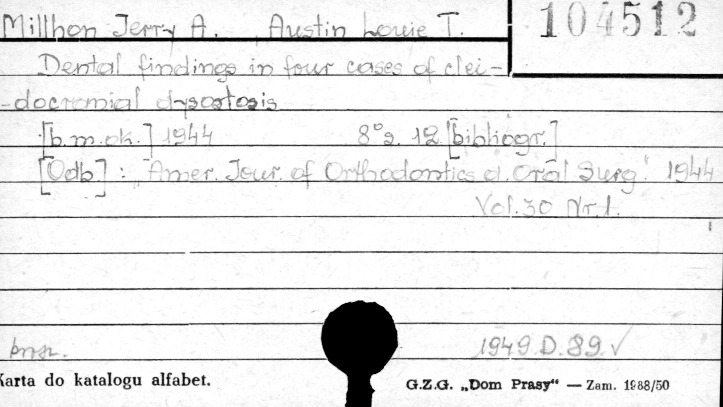 Millhon Jerry A. Austin Louie T. 104512
Dental findings in four cases of clei-
-docranial dysostosis
[b.m.ok.] 1944 8° s. 12 [bibliogr.]
[Odb] : "Amer. Jour. of Orthodontics a. Oral Surg." 1944
Vol. 30 Nr. 1.
brosz. 1949.D.89.✓
Karta do katalogu alfabet. G.Z.G. „Dom Prasy“ — Zam. 1988/50